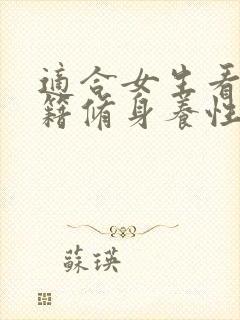 適合女生看
籍脩身養性
蘇瑛